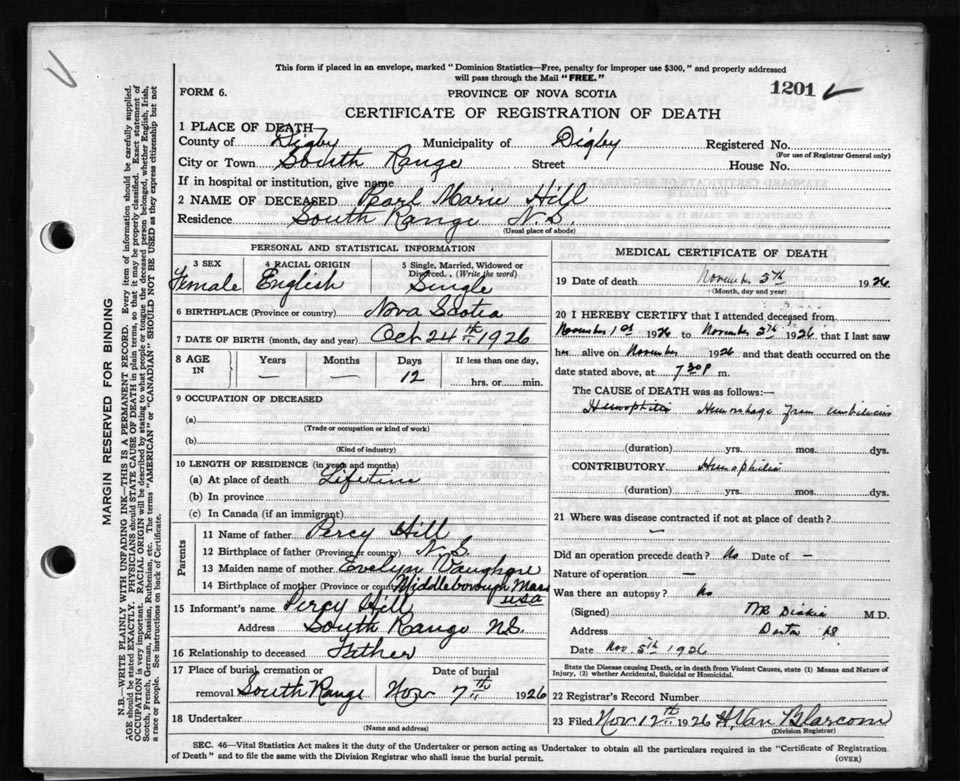 This form if placed in an envelope, marked "Dominion Statistics—Free, penalty for improper use $300," and properly addressed
will pass through the Mail "FREE."
FORM 6.
PROVINCE OF NOVA SCOTIA
1201
CERTIFICATE OF REGISTRATION OF DEATH
1 PLACE OF DEATH
County of Digby Municipality of Digby Registered No.
(For use of Registrar General only)
City or Town South Range Street House No.
If in hospital or institution, give name
2 NAME OF DECEASED Pearl Marie Hill
Residence South Range N.S.
(Usual place of abode)
PERSONAL AND STATISTICAL INFORMATION
3 SEX 4 RACIAL ORIGIN 5 Single, Married, Widowed or
Divorced. (Write the word)
Female English Single
6 BIRTHPLACE (Province or country) Nova Scotia
7 DATE OF BIRTH (month, day and year) Oct 24th 1926
8 AGE IN Years Months Days If less than one day,
— — 12 hrs. or min.
9 OCCUPATION OF DECEASED
(a)
(Trade or occupation or kind of work)
(b)
(Kind of industry)
10 LENGTH OF RESIDENCE (in years and months)
(a) At place of death Lifetime
(b) In province
(c) In Canada (if an immigrant)
Parents
11 Name of father Percy Hill
12 Birthplace of father (Province or country) N.S.
13 Maiden name of mother Evelyn
14 Birthplace of mother (Province or country) Middleborough Mass
USA
15 Informant's name Percy Hill
Address South Range NS.
16 Relationship to deceased Father
17 Place of burial, cremation or Date of burial
removal South Range Nov 7th 1926
18 Undertaker
(Name and address)
MEDICAL CERTIFICATE OF DEATH
19 Date of death November 5th 1926
(Month, day and year)
20 I HEREBY CERTIFY that I attended deceased from
November 1st 1926 to November 5th 1926 that I last saw
her alive on November 1926 and that death occurred on the
date stated above, at 7 30 P m.
The CAUSE of DEATH was as follows:—
Hemophilia Hemorrhage from umbilicus
(duration) yrs. mos. dys.
CONTRIBUTORY Hemophilia
(duration) yrs. mos. dys.
21 Where was disease contracted if not at place of death?
—
Did an operation precede death? No Date of —
Nature of operation —
Was there an autopsy? No
(Signed) M.D.
Address
Date Nov. 5th 1926
State the Disease causing Death, or in death from Violent Causes, state (1) Means and Nature of
Injury, (2) whether Accidental, Suicidal or Homicidal.
22 Registrar's Record Number
23 Filed Nov. 12th 1926 H. Van Blarcom
(Division Registrar)
SEC. 46—Vital Statistics Act makes it the duty of the Undertaker or person acting as Undertaker to obtain all the particulars required in the "Certificate of Registration
of Death" and to file the same with the Division Registrar who shall issue the burial permit.
(OVER)
MARGIN RESERVED FOR BINDING
N.B.—WRITE PLAINLY WITH UNFADING INK—THIS IS A PERMANENT RECORD. Every item of information should be carefully supplied.
AGE should be stated EXACTLY. PHYSICIANS should STATE CAUSE OF DEATH in plain terms, so that it may be properly classified. Exact statement of
OCCUPATION is very important. RACIAL ORIGIN will be described by stating to what people or tongue the deceased person belonged, whether English, Irish,
Scotch, French, German, Russian, Ruthenian, etc. The terms "AMERICAN" or "CANADIAN" SHOULD NOT BE USED as they express citizenship but not
a race or people. See instructions on back of Certificate.